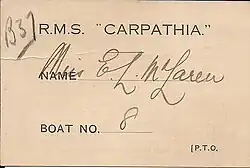 B37
R.M.S. "CARPATHIA."
NAME Miss E. L. McLaren
BOAT NO. 8
[P.T.O.